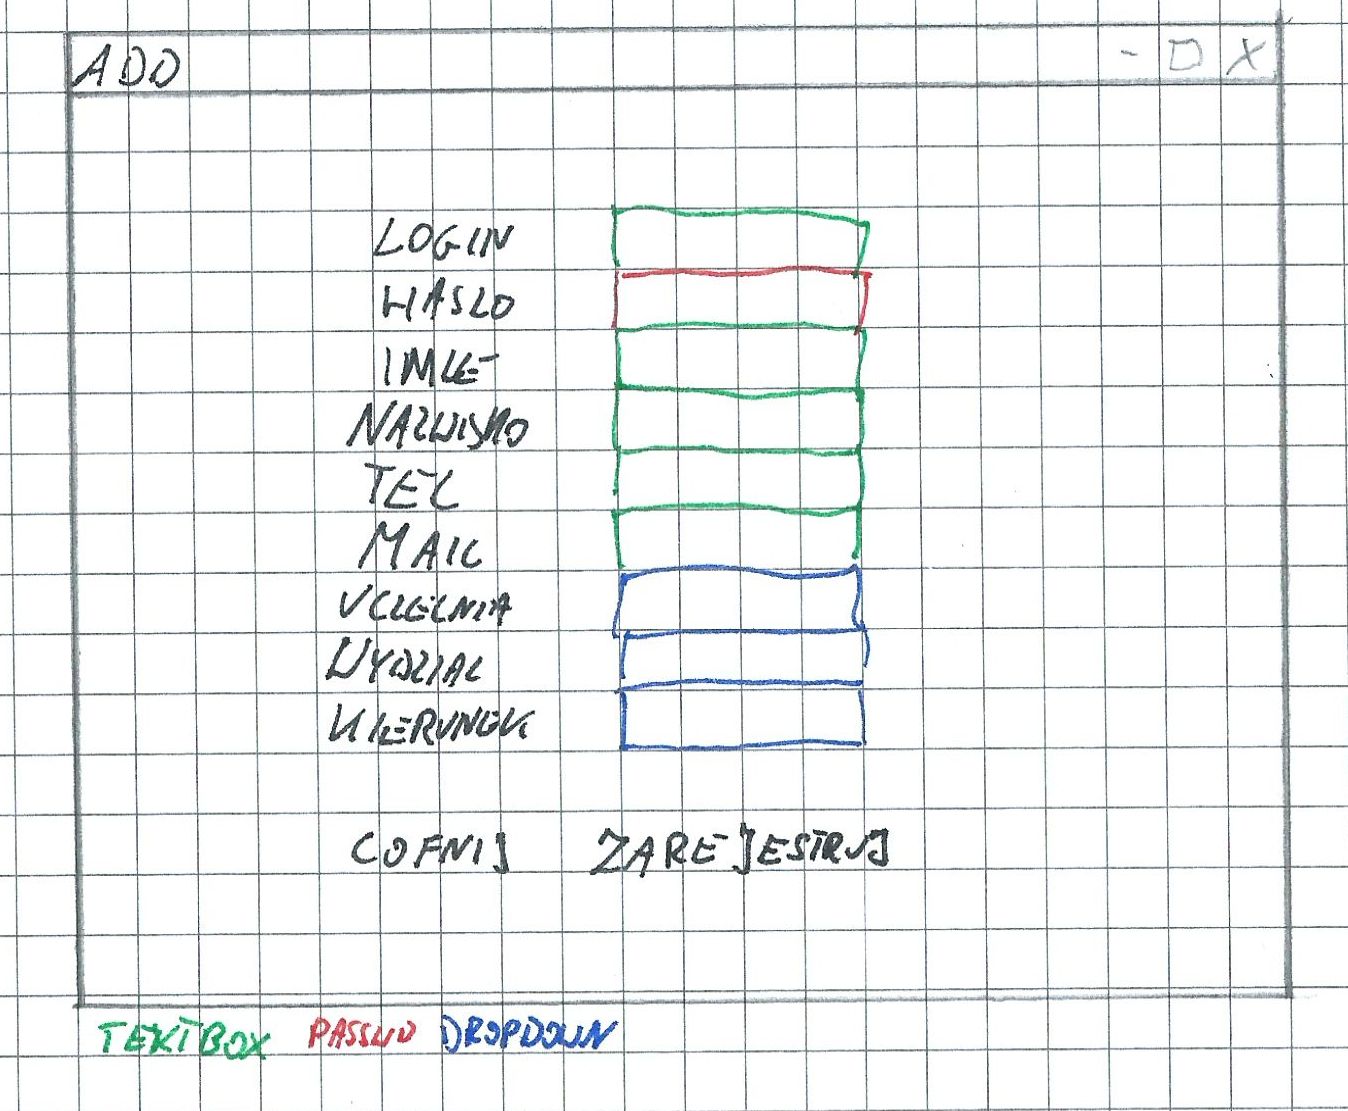 ADD - □ X
LOGIN
HASLO
IMIE
NAZWISKO
TEL
MAIL
UCZELNIA
WYDZIAL
KIERUNEK
COFNIJ ZAREJESTRUJ
TEXTBOX PASSWD DROPDOWN